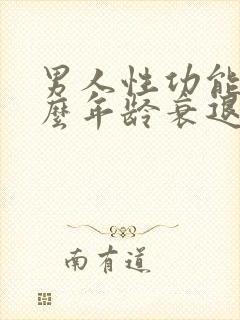 男人性功能
麽年龄衰退
南有道